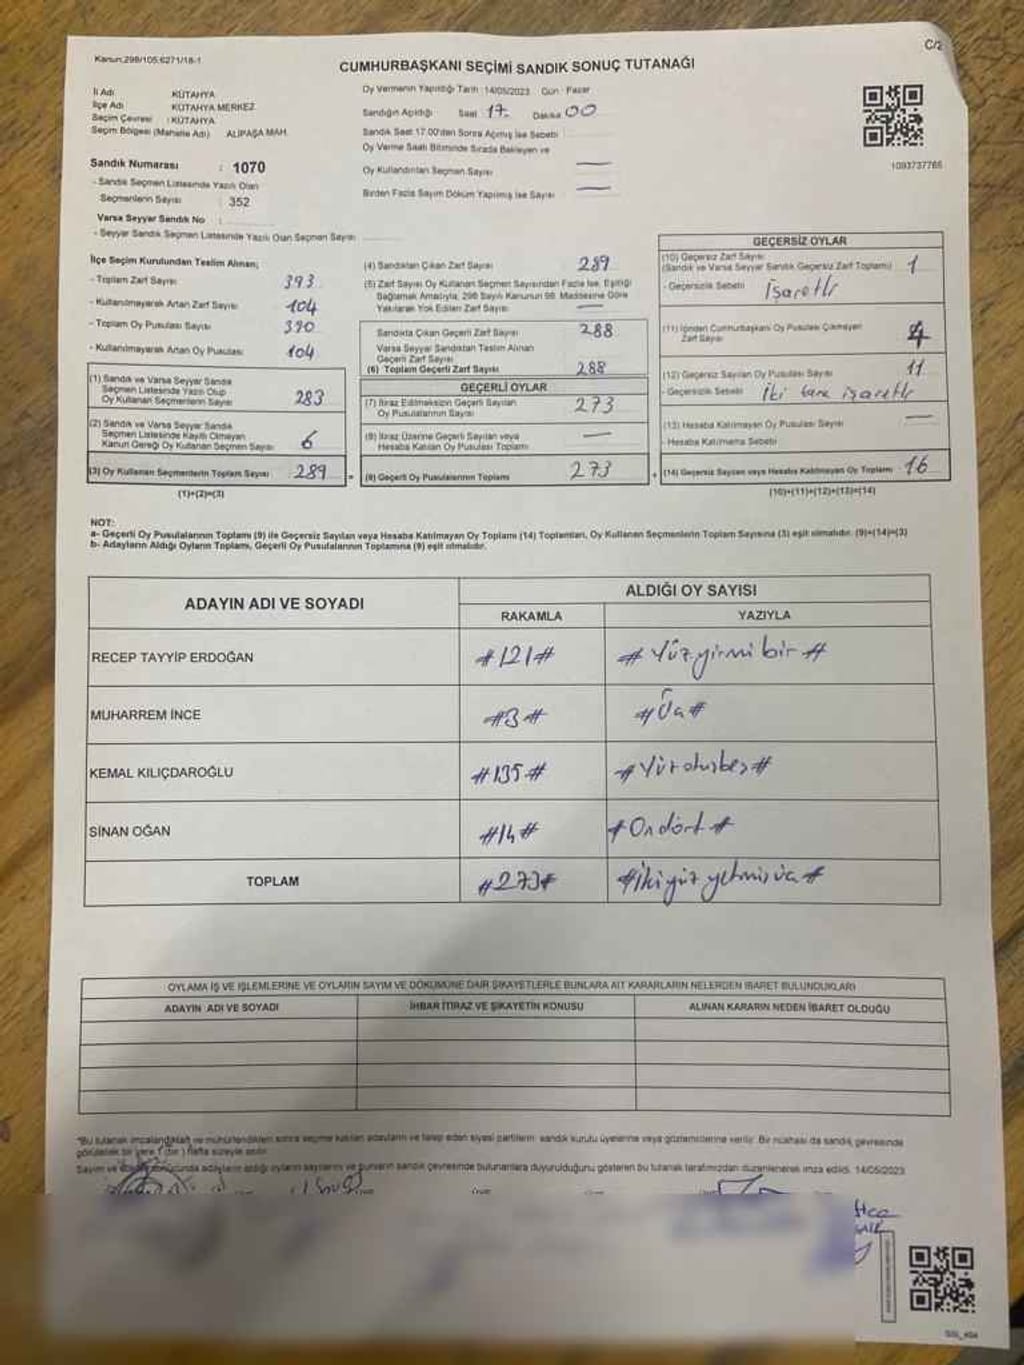 Kanun:298/105,6271/18-1
C/2
CUMHURBAŞKANI SEÇİMİ SANDIK SONUÇ TUTANAĞI
İl Adı KÜTAHYA
İlçe Adı KÜTAHYA MERKEZ
Seçim Çevresi : KÜTAHYA
Seçim Bölgesi (Mahalle Adı) ALİPAŞA MAH.
Oy Vermenin Yapıldığı Tarih : 14/05/2023 Gün : Pazar
Sandığın Açıldığı Saat 17 Dakika 00
Sandık Saat 17.00'den Sonra Açılmış İse Sebebi
Oy Verme Saati Bitiminde Sırada Bekleyen ve
Oy Kullandırılan Seçmen Sayısı —
Birden Fazla Sayım Döküm Yapılmış İse Sayısı —
1093737765
Sandık Numarası : 1070
- Sandık Seçmen Listesinde Yazılı Olan
Seçmenlerin Sayısı : 352
Varsa Seyyar Sandık No :
- Seyyar Sandık Seçmen Listesinde Yazılı Olan Seçmen Sayısı
İlçe Seçim Kurulundan Teslim Alınan;
- Toplam Zarf Sayısı 393
- Kullanılmayarak Artan Zarf Sayısı 104
- Toplam Oy Pusulası Sayısı 390
- Kullanılmayarak Artan Oy Pusulası 104
(1) Sandık ve Varsa Seyyar Sandık
Seçmen Listesinde Yazılı Olup
Oy Kullanan Seçmenlerin Sayısı 283
(2) Sandık ve Varsa Seyyar Sandık
Seçmen Listesinde Kayıtlı Olmayan
Kanun Gereği Oy Kullanan Seçmen Sayısı 6
(3) Oy Kullanan Seçmenlerin Toplam Sayısı 289 =
(1)+(2)=(3)
(4) Sandıktan Çıkan Zarf Sayısı 289
(5) Zarf Sayısı Oy Kullanan Seçmen Sayısından Fazla İse, Eşitliği
Sağlamak Amacıyla, 298 Sayılı Kanunun 98. Maddesine Göre
Yakılarak Yok Edilen Zarf Sayısı —
Sandıkta Çıkan Geçerli Zarf Sayısı 288
Varsa Seyyar Sandıktan Teslim Alınan
Geçerli Zarf Sayısı
(6) Toplam Geçerli Zarf Sayısı 288
GEÇERLİ OYLAR
(7) İtiraz Edilmeksizin Geçerli Sayılan
Oy Pusulalarının Sayısı 273
(8) İtiraz Üzerine Geçerli Sayılan veya
Hesaba Katılan Oy Pusulası Toplamı —
(9) Geçerli Oy Pusulalarının Toplamı 273 +
GEÇERSİZ OYLAR
(10) Geçersiz Zarf Sayısı
(Sandık ve Varsa Seyyar Sandık Geçersiz Zarf Toplamı) 1
- Geçersizlik Sebebi İşaretlr
(11) İçinden Cumhurbaşkanı Oy Pusulası Çıkmayan
Zarf Sayısı 4
(12) Geçersiz Sayılan Oy Pusulası Sayısı 11
- Geçersizlik Sebebi İki tane işaretlr
(13) Hesaba Katılmayan Oy Pusulası Sayısı —
- Hesaba Katılmama Sebebi
(14) Geçersiz Sayılan veya Hesaba Katılmayan Oy Toplamı 16
(10)+(11)+(12)+(13)=(14)
NOT:
a- Geçerli Oy Pusulalarının Toplamı (9) ile Geçersiz Sayılan veya Hesaba Katılmayan Oy Toplamı (14) Toplamları, Oy Kullanan Seçmenlerin Toplam Sayısına (3) eşit olmalıdır. (9)+(14)=(3)
b- Adayların Aldığı Oyların Toplamı, Geçerli Oy Pusulalarının Toplamına (9) eşit olmalıdır.
ADAYIN ADI VE SOYADI
ALDIĞI OY SAYISI
RAKAMLA YAZIYLA
RECEP TAYYİP ERDOĞAN #121# #Yüzyirmi bir#
MUHARREM İNCE #3# #Üç#
KEMAL KILIÇDAROĞLU #135# #Yüzotuzbeş#
SİNAN OĞAN #14# #Ondört#
TOPLAM #273# #İkiyüz yetmişüç#
OYLAMA İŞ VE İŞLEMLERİNE VE OYLARIN SAYIM VE DÖKÜMÜNE DAİR ŞİKAYETLERLE BUNLARA AİT KARARLARIN NELERDEN İBARET BULUNDUKLARI
ADAYIN ADI VE SOYADI İHBAR İTİRAZ VE ŞİKAYETİN KONUSU ALINAN KARARIN NEDEN İBARET OLDUĞU
"Bu tutanak imzalandıktan ve mühürlendikten sonra seçime katılan adayların ve talep eden siyasi partilerin sandık kurulu üyelerine veya gözlemcilerine verilir. Bir nüshası da sandık çevresinde
görülebilir bir yere 1 (bir) hafta süreyle asılır.
Sayım ve döküm sonucunda adayların aldığı oyların sayılarını ve bunların sandık çevresinde bulunanlara duyurulduğunu gösteren bu tutanak tarafımızdan düzenlenerek imza edildi. 14/05/2023